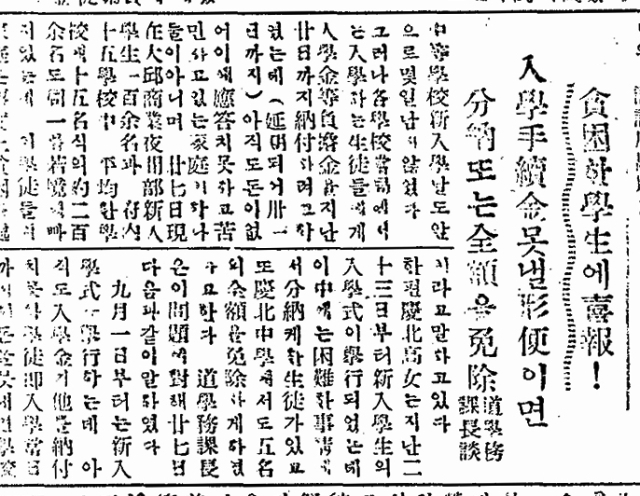 貧困한學生에喜報!
入學手續金못낼形便이면
分納또는全額을免除
道學務
課長談
中等學校新入學난도앞
으로몇일남지않었다
그러나各學校當局에서
는入學하는生徒들에게
人學金等負擔金을지난
廿日까지納付하려고하
였는데(延期되어卅一
日까지)아직도돈이없
어이에應答치못하고苦
민하고있는家庭이하나
둘이아니며 廿七日現
在大邱商業夜間部新入
學生一百余名과 府內
十五學校中 平均한學
校에十五名식의約二百
余名도同一한若境에빠
지있는데 이學徒들의
이라고말하고있다
한편慶北高女는지난二
十三日부터新入學生의
入學式이擧行되었는데
이中에는困難한事情에
서分納케한生徒가있고
또慶北中學에서도五名
의全額을免除하게하였
다고한다 道學務課長
은이問題에對해廿七日
다음과같이말하였다
九月一日부터는新入
學式을擧行하는데 아
직도入學金其他를納付
치못한學徒即入學當日